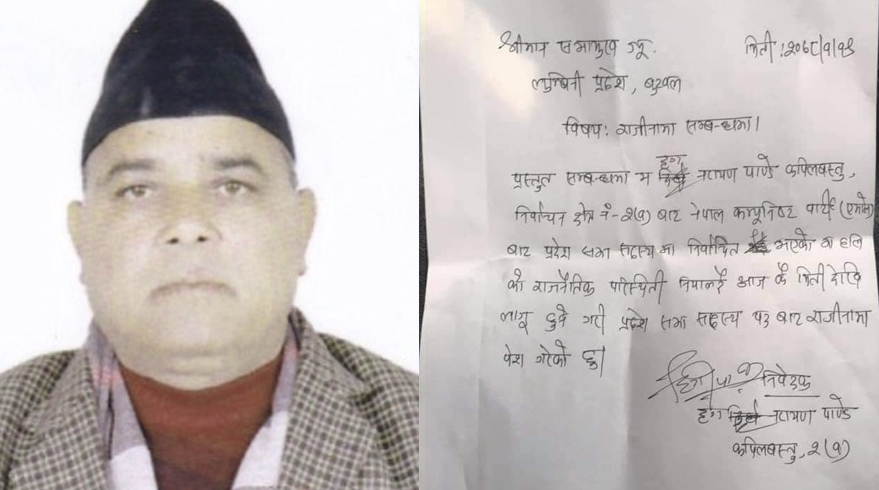 श्रीमान सभामुख ज्यू. मिती:२०७८/१/१९
लुम्बिनी प्रदेश, बुटवल
विषय: राजीनामा सम्बन्धमा।
प्रस्तुत सम्बन्धमा म दृग नारायण पाण्डे कपिलबस्तु,
निर्वाचन क्षेत्र नं-२(१) बाट नेपाल कम्युनिष्ट पार्टी (एमाले)
बाट प्रदेश सभा सदस्य मा निर्वाचित भएको मा हाल
को राजनैतिक परिस्थिती नियाल्दै आज कै मिती देखि
लागू हुने गरी प्रदेश सभा सदस्य पद बाट राजीनामा
पेश गरेको छु।
निवेदक
दृग नारायण पाण्डे
कपिलबस्तु, २(१)